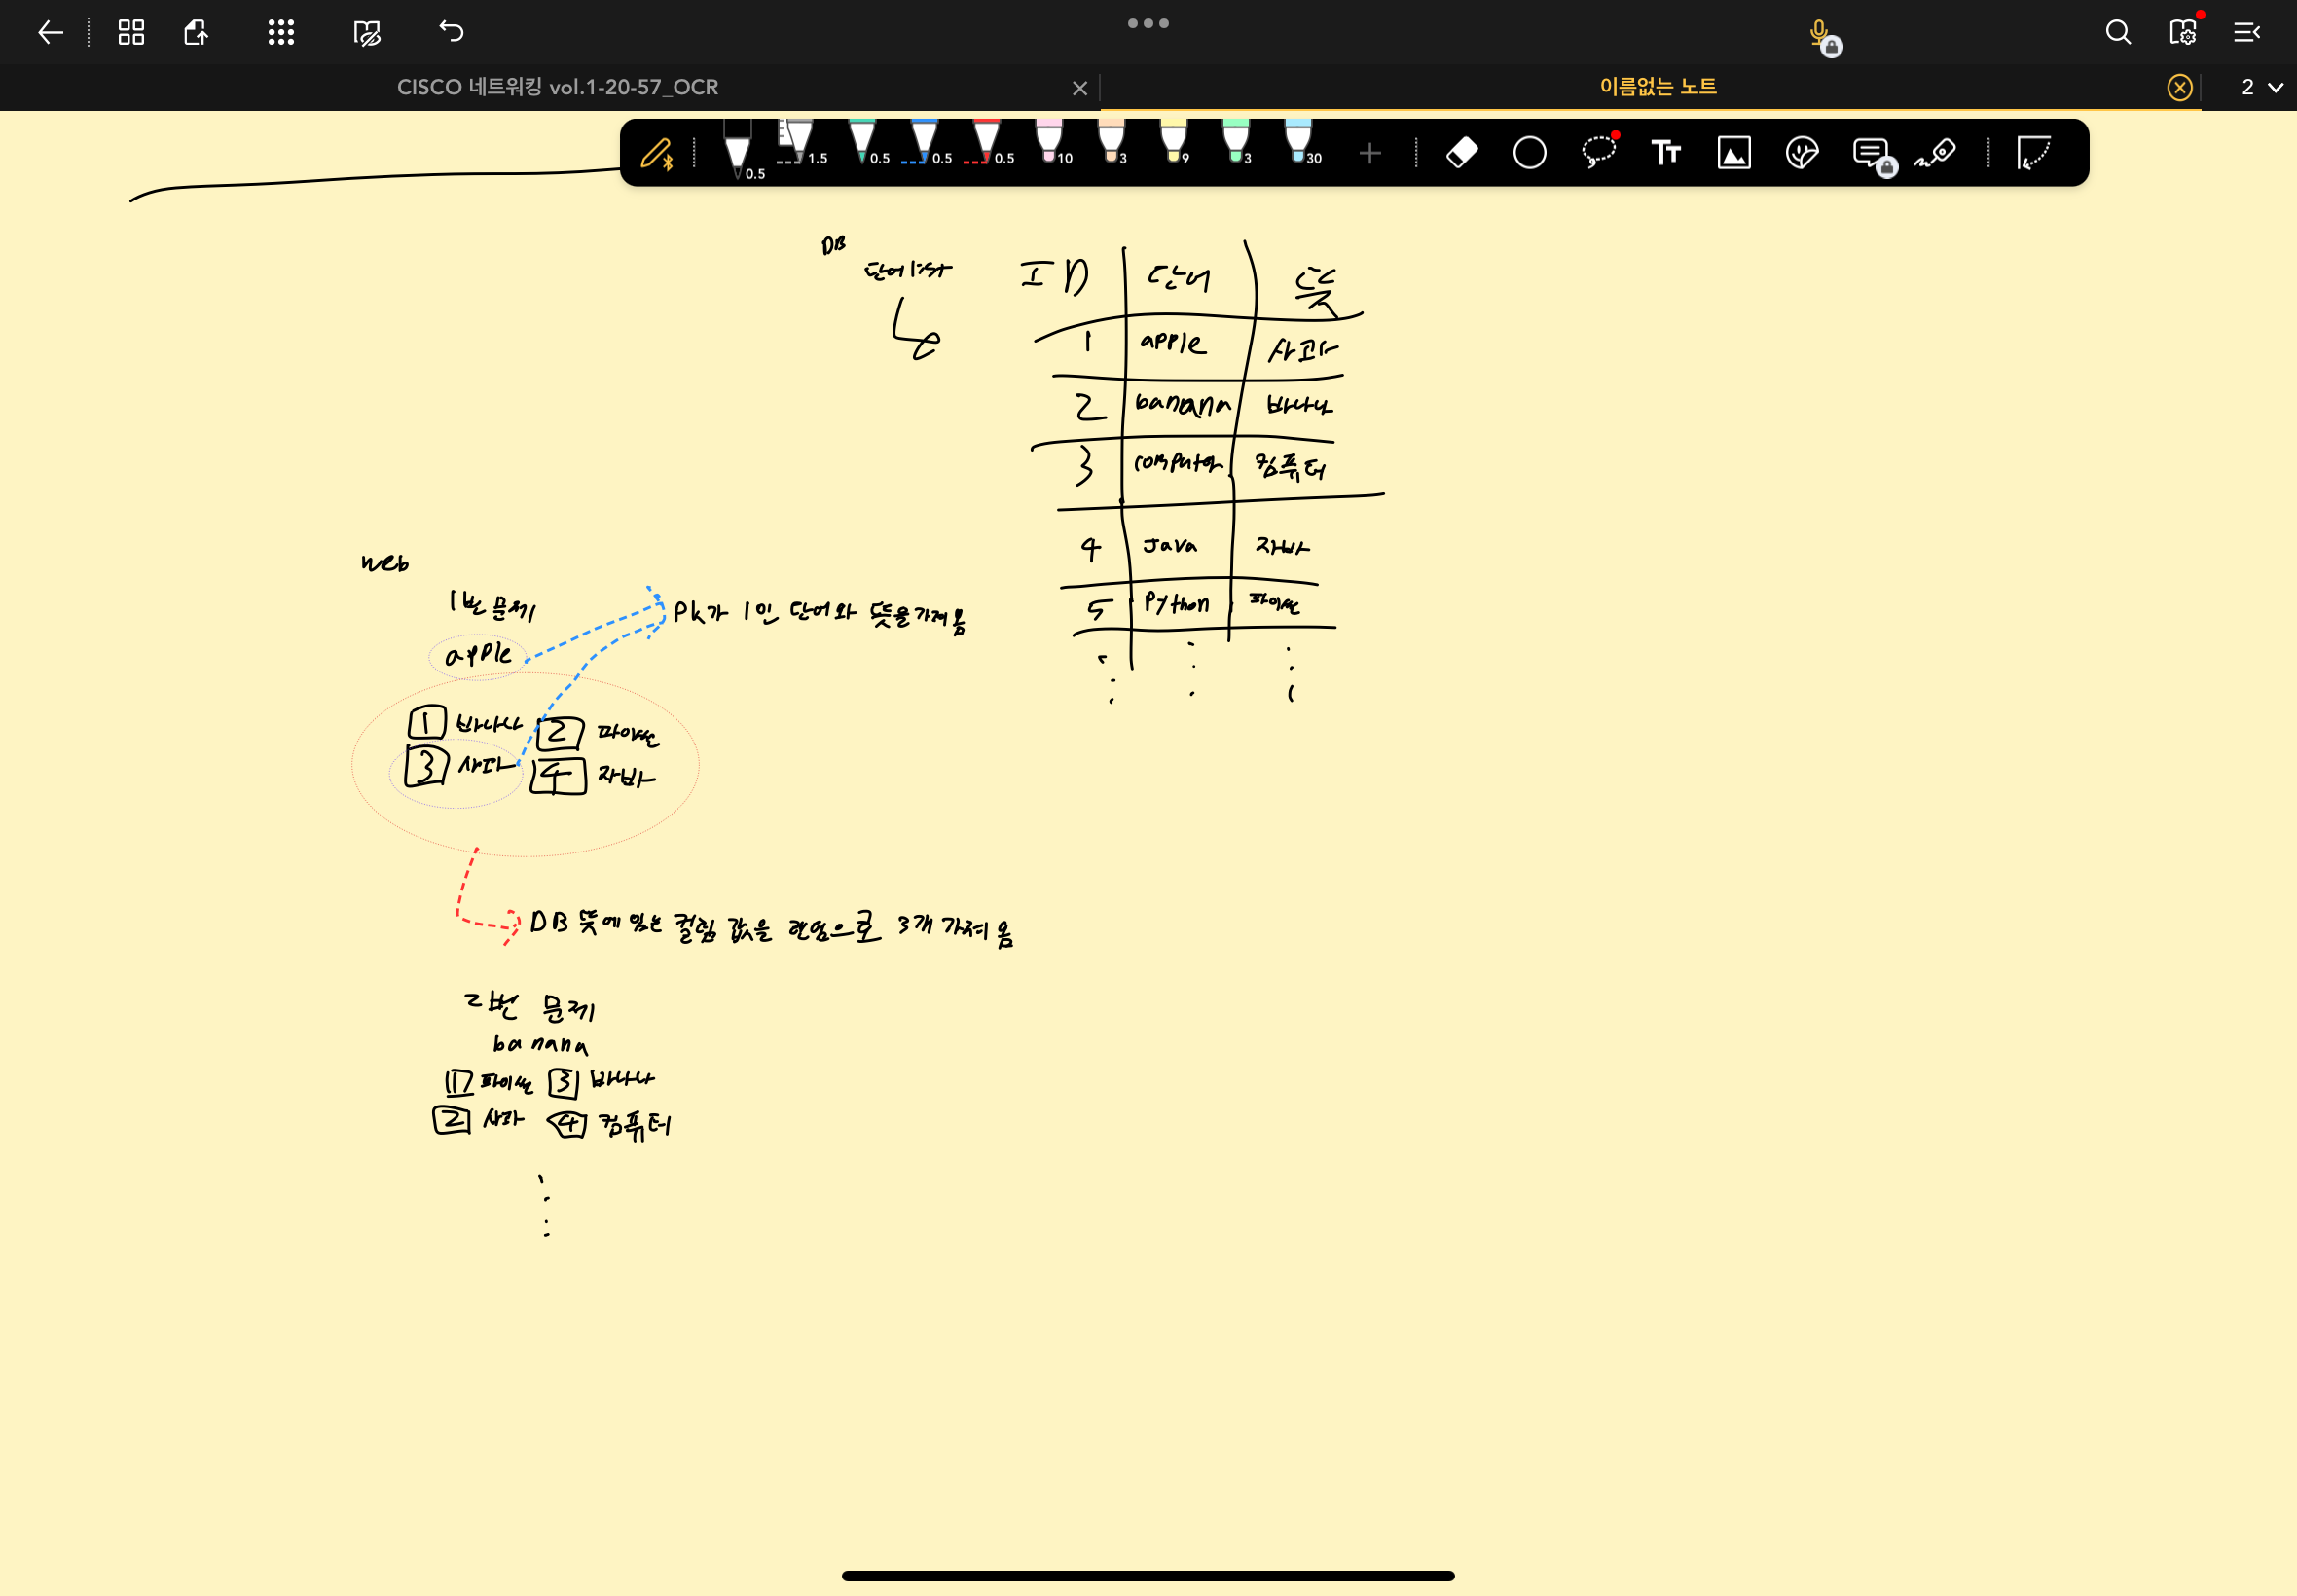 CISCO 네트워킹 vol.1-20-57_OCR
이름없는 노트
2
0.5 1.5 0.5 0.5 0.5 10 3 9 3 30
DB
단어
ID 단어 뜻
1 apple 사과
2 banana 바나나
3 computer 컴퓨터
4 Java 자바
5 Python 파이썬
web
1번 문제
apple
PK가 1인 단어와 뜻을 가져옴
1 바나나 2 파이썬
3 사과 4 자바
DB 뜻에 있는 컬럼 값을 랜덤으로 3개 가져옴
2번 문제
banana
1 파이썬 3 바나나
2 사과 4 컴퓨터